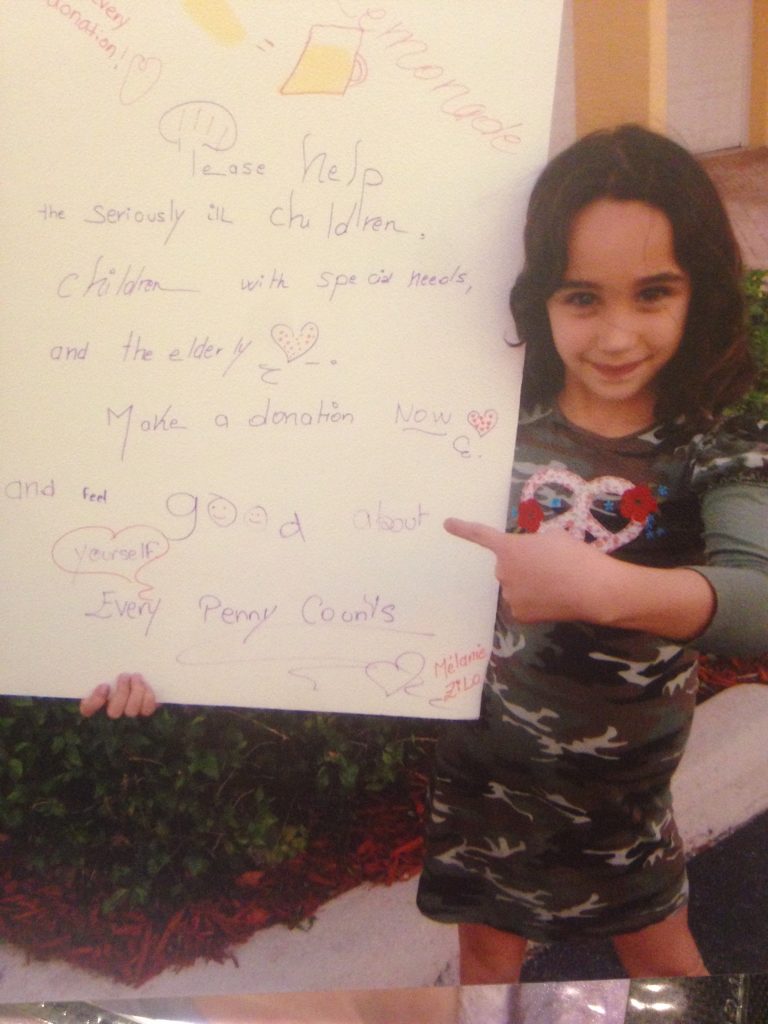 every
donation!
Lemonade
Please help
the seriously ill children,
children with special needs,
and the elderly
Make a donation NOW
and feel good about
yourself
Every Penny Counts
Mélanie
ZiLo